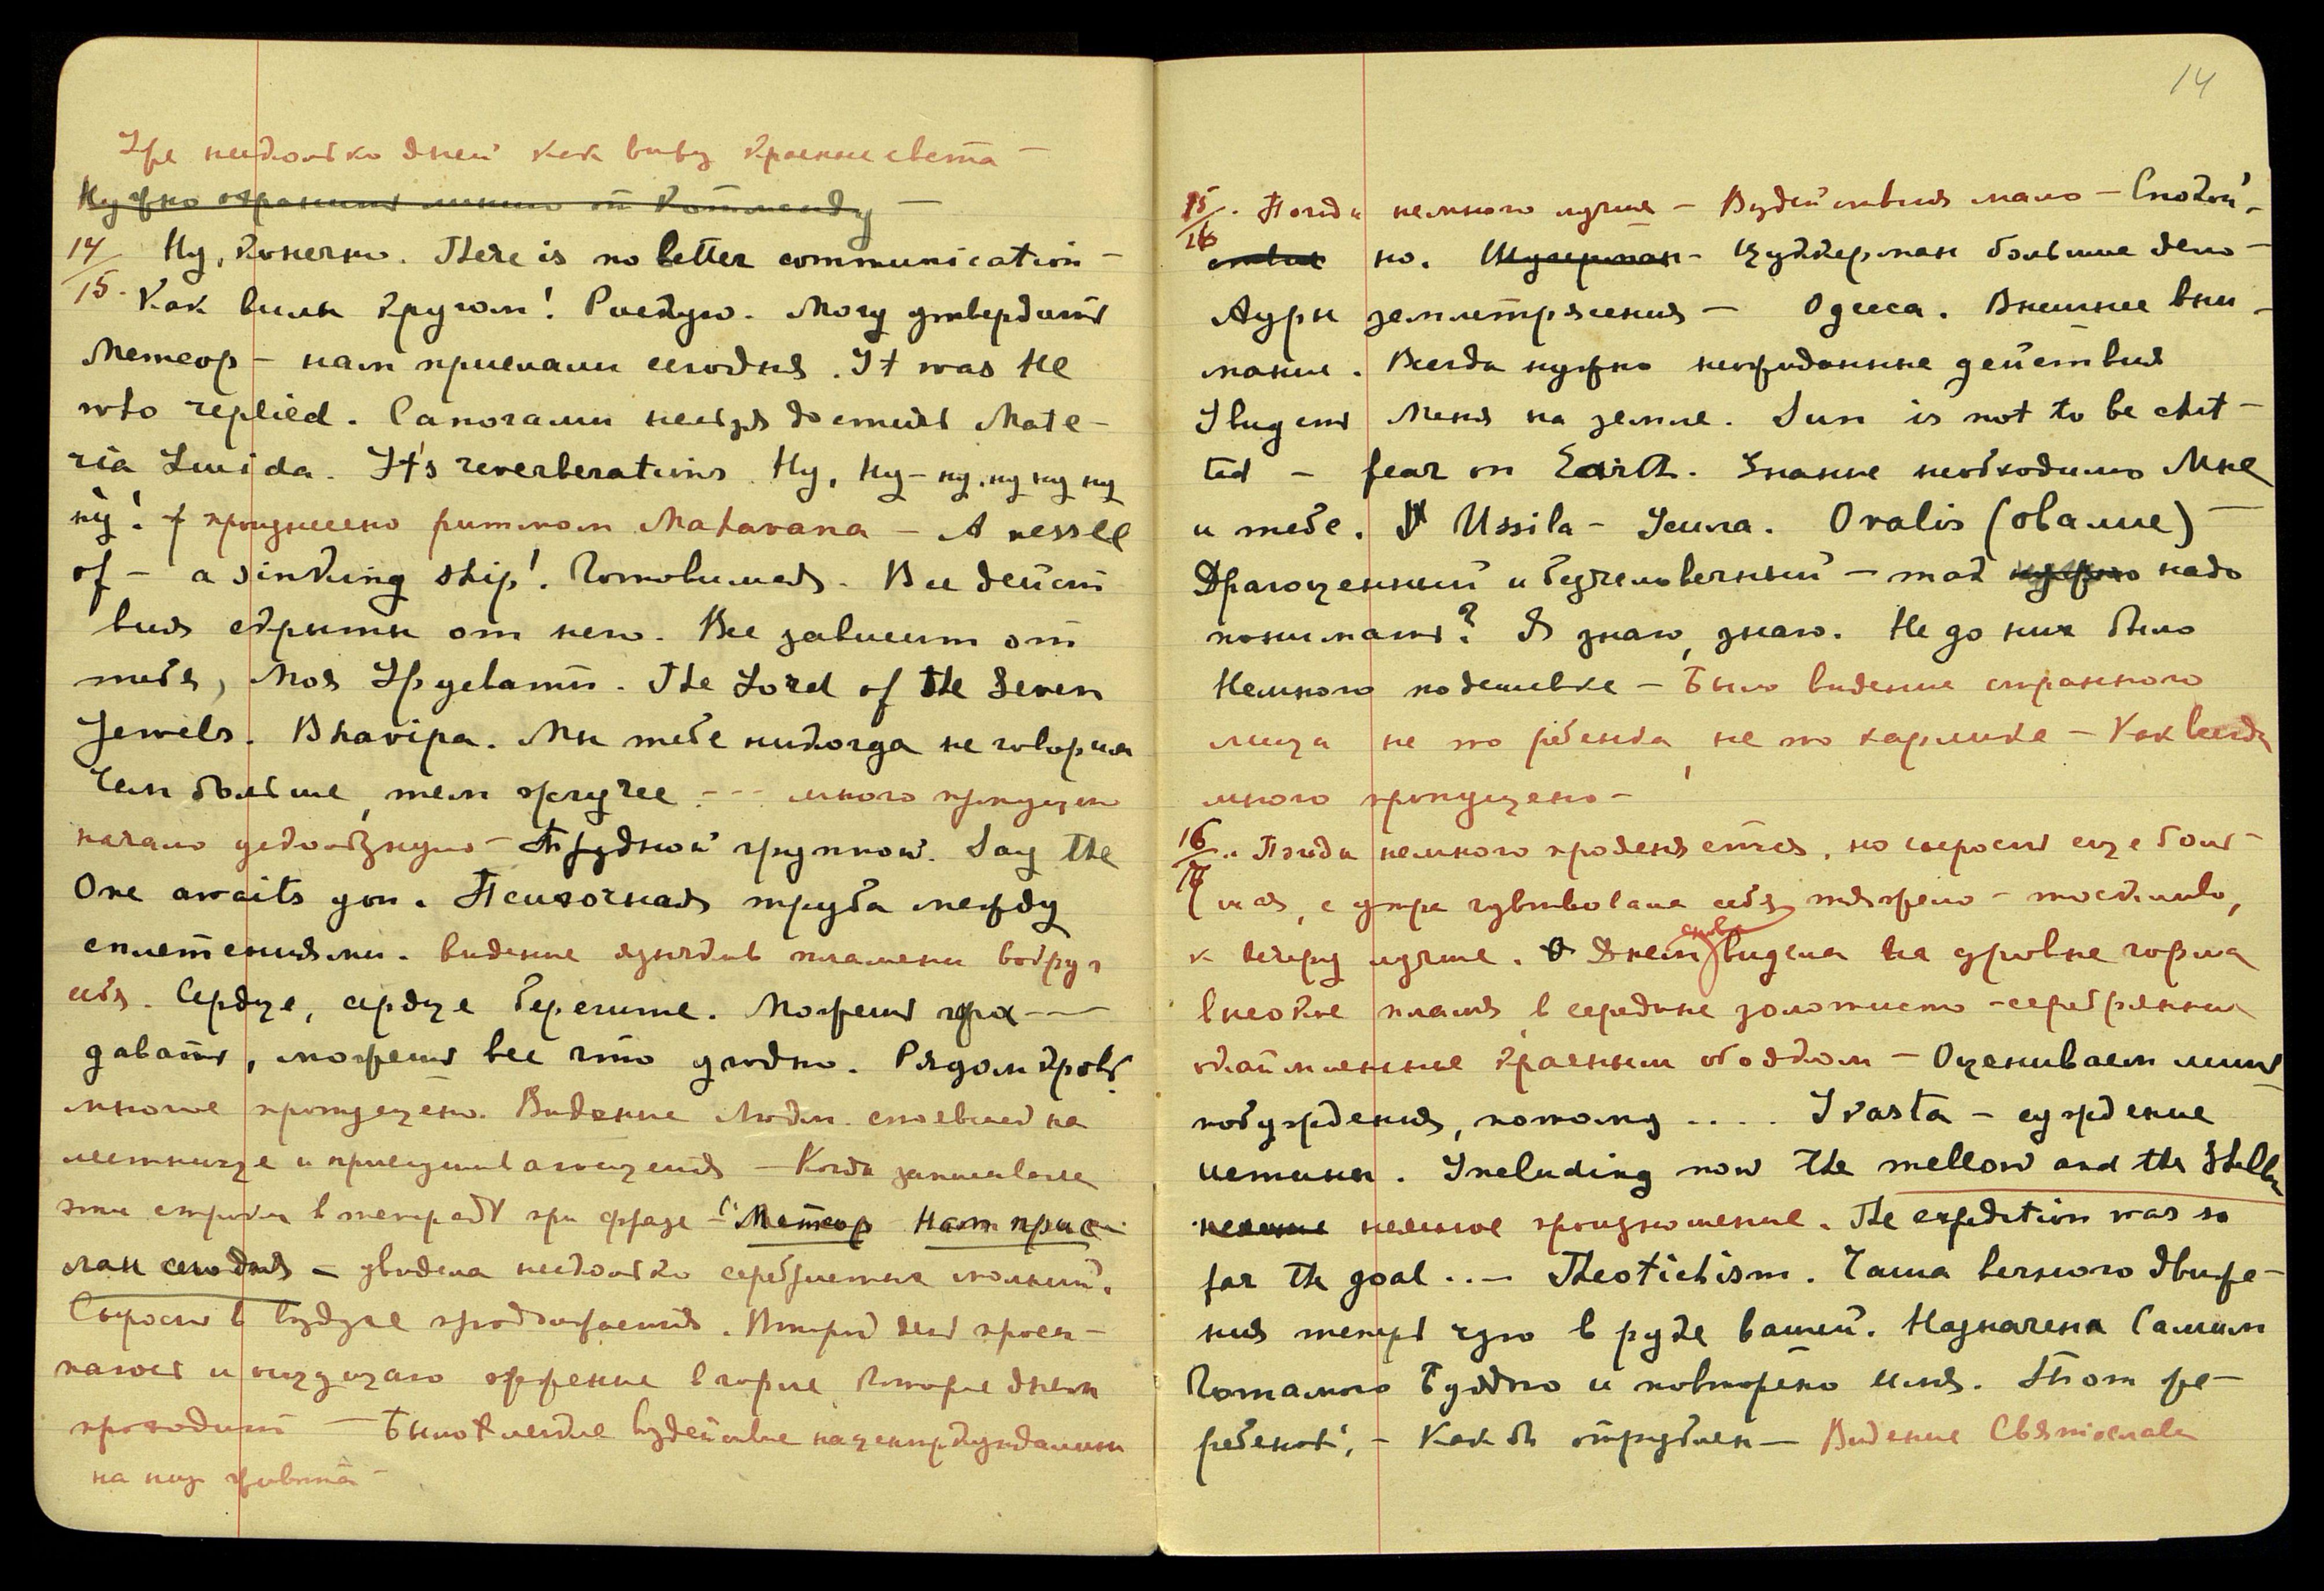 Уже несколько дней как вижу красные света —
Нужно охранить линию от Коттменду —
14/15. Ну, конечно. There is no better communication —
Как вилы кругом! Рискую. Могу утвердить
Метеор — нам прислали сегодня. It was He
who replied. Сапогами нельзя достичь Mate-
ria Lucida. It's reverberations. Ну, ну — ну, ну ну ну
ну! произнесено ритмом Mahavana — A vessel
of — a sinking ship! Готовимся. Все дейст
вия скрыты от него. Все зависит от
тебя, Моя Урусвати. The Lord of the Seven
Jewels. Bhavipa. Мы тебе никогда не говорили
Чем больше, тем жгучее --- много пропущено
начало ускользнуло — Трудной группой. Say the
One awaits you. Психочная труба между
сплетениями. Видение язычков пламени вокруг
себя. Сердце, сердце берегите. Можешь ---
давать, можешь все что угодно. Рядом кровь.
многое пропущено. Видение Людм. стоевшей на
лестнице и прислушивающейся — Когда записывала
эти строки в тетрадь при фразе — "Метеор Нам прис-
лан сегодня — увидела несколько серебристых молний.
Сырость в воздухе продолжается. Второй день просы-
паюсь и ощущаю жжение в горле которое днем
проходит — Было легкое воздействие на центр кундалини
на низ живота —
14
15/16. Погода немного лучше — Воздействия мало — Спокой-
но. Цуккерман больше дело —
Ауры землетрясения — Одесса. Внешнее вни-
мание. Всегда нужно неожиданные действия
Увидеть Меня на земле. Sun is not to be
ted — fear on Earth. Знание необходимо Мне
и тебе. Ussila — Усила. Ovalis (овалис) —
Драгоценный и безчеловечный — так нужно надо
понимать? Я знаю, знаю. Не до них было
Немного подешевке — Было видение странного
лица не то ребенка, не то карлика — Как всегда
много пропущено —
16/17. Погода немного проясняется, но сырость еще боль-
шая, с утра чувствовала себя тяжело — тоскливо,
к вечеру лучше. Днем снова видела на уровне горла
высокое пламя, в середине золотисто-серебрянный
окаймленные красным ободком — Оцениваем лишь
побуждения, потому .... Ivasta — суждение
истины. Including now the mellow and the
неясное произношение. The expedition was so
far the goal ..— Theotichism. Чаша верного движе-
ния теперь чую в руке вашей. Назначена Самим
Готамого Буддою и повторено имя. Этот же-
ребенок, — Как бы отрублен — Видение Святослава